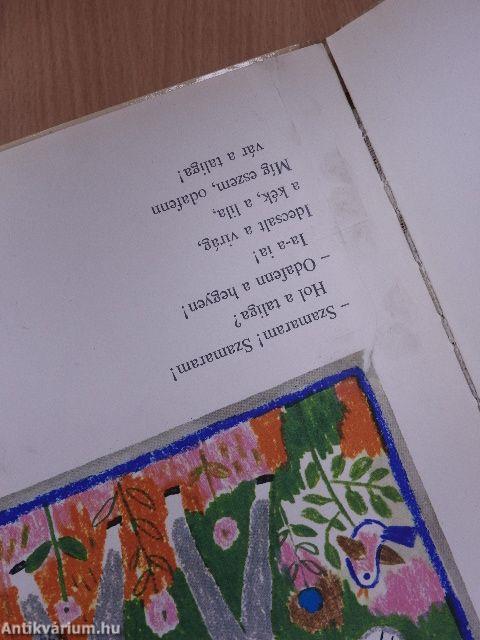 – Szamaram! Szamaram!
Hol a taliga?
– Odafenn a hegyen!
Ia-a ia!
Idecsalt a virág,
a kék, a lila,
Míg eszem, odafenn
vár a taliga!
Antikvárium.hu